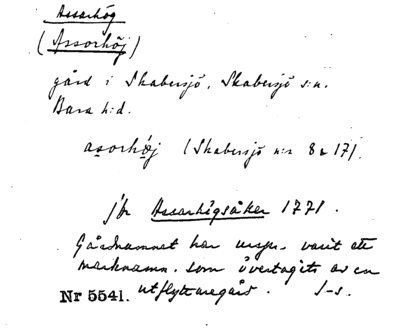 Assarhög
(Assorhöj)
gård i Skabersjö, Skabersjö s:n.
Bara h:d.
asorhöj (Skabersjö n:r 8 & 17).
jfr Assarhögsåker 1771.
Gårdnamnet har urspr. varit ett
marknamn, som övertagits av en
Nr 5541. utflyttaregård. J-s.